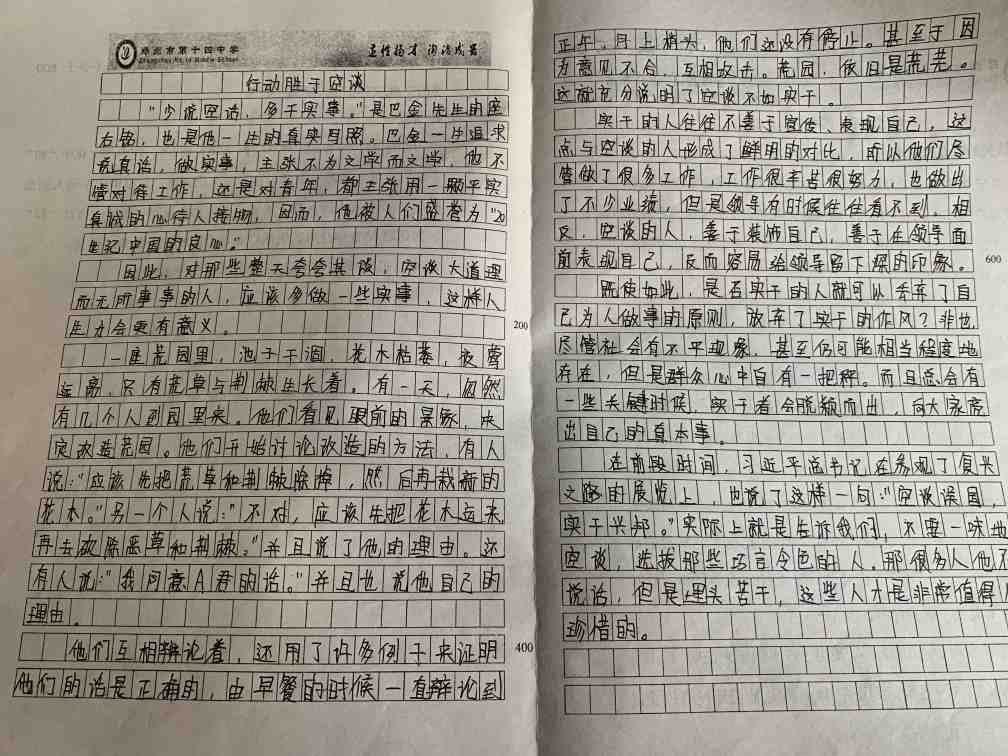 郑州市第十四中学
行动胜于空谈
"少说空话，多干实事。"是巴金先生的座
右铭，也是他一生的真实写照。巴金一生追求
说真话，做实事，主张不为文学而文学，他不
管对待工作，还是对青年，都主张用一颗平实
真诚的心待人接物，因而，他被人们盛誉为"20
世纪中国的良心。"
因此，对那些整天夸夸其谈，空谈大道理
而无所事事的人，应该多做一些实事，这样人
生才会更有意义。
200
一座荒园里，池子干涸，花木枯萎，夜莺
远离，只有荒草与荆棘生长着。有一天，忽然
有几个人到园里来。他们看见眼前的景象，决
定改造荒园。他们开始讨论改造的方法，有人
说："应该先把荒草和荆棘除掉，然后再栽新的
花木。"另一个人说："不对，应该先把花木运来，
再去砍除恶草和荆棘。"并且说了他的理由。还
有人说："我同意A君的话。"并且也说他自己的
理由。
他们互相辩论着，还用了许多例子来证明
400
他们的话是正确的，由早餐的时候一直辩论到
正午，月上梢头，他们还没有停止。甚至于因
为意见不合，互相攻击。荒园，依旧是荒芜。
这就充分说明了空谈不如实干。
实干的人往往不善于宣传、表现自己，这
点与空谈的人形成了鲜明的对比，所以他们尽
管做了很多工作，工作很辛苦很努力，也做出
了不少业绩，但是领导有时候往往看不到。相
反，空谈的人，善于装饰自己，善于在领导面
前表现自己，反而容易给领导留下深的印象。
600
既使如此，是否实干的人就可以丢弃了自
己为人做事的原则，放弃了实干的作风？非也，
尽管社会有不平现象，甚至仍可能相当程度地
存在，但是群众心中自有一把秤。而且总会有
一些关键时候，实干者会脱颖而出，向大家亮
出自己的真本事。
在前段时间，习近平总书记在参观了复兴
之路的展览上，也说了这样一句："空谈误国，
实干兴邦。"实际上就是告诉我们，不要一味地
空谈，选拔那些巧言令色的人。那很多人他不
说话，但是埋头苦干，这些人才是非常值得
珍惜的。